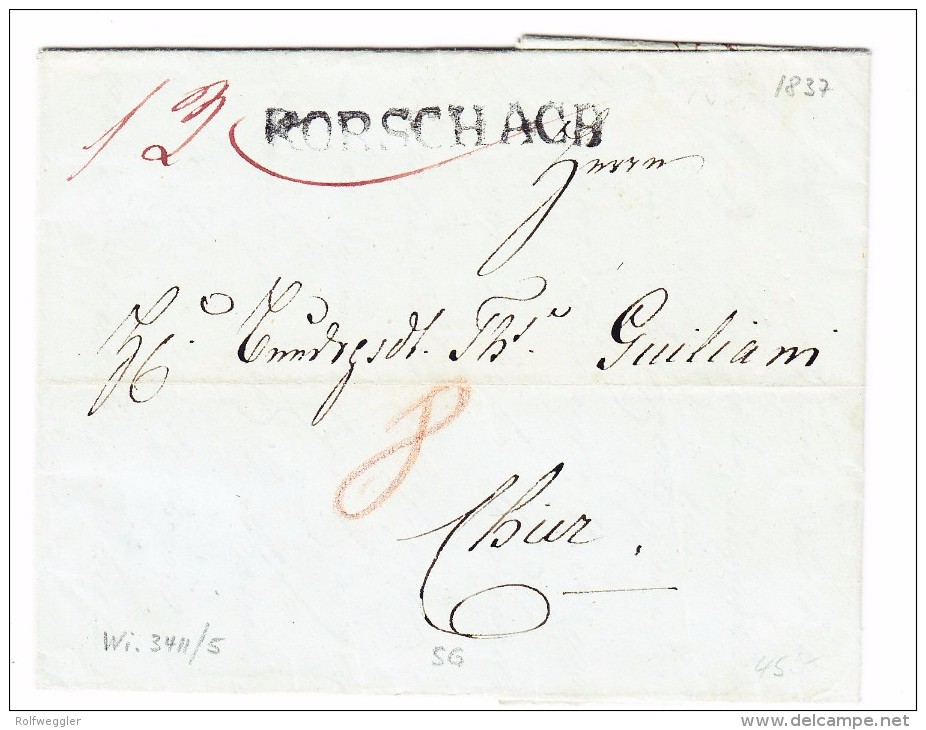 1837
12
RORSCHACH
Herrn
Th. Guiliani
8
Chur.
Wi. 3411/5
SG
45.-
Rolfweggler
www.delcampe.net